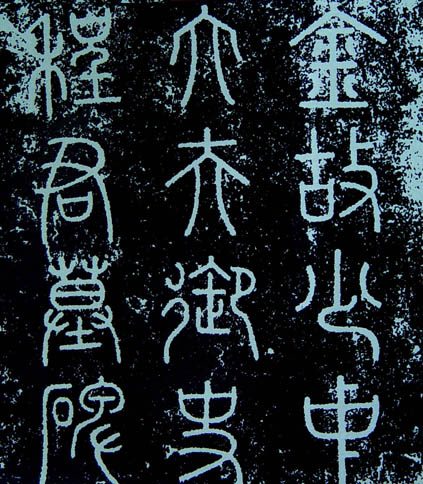 金故少中
大夫御史
程君墓碑